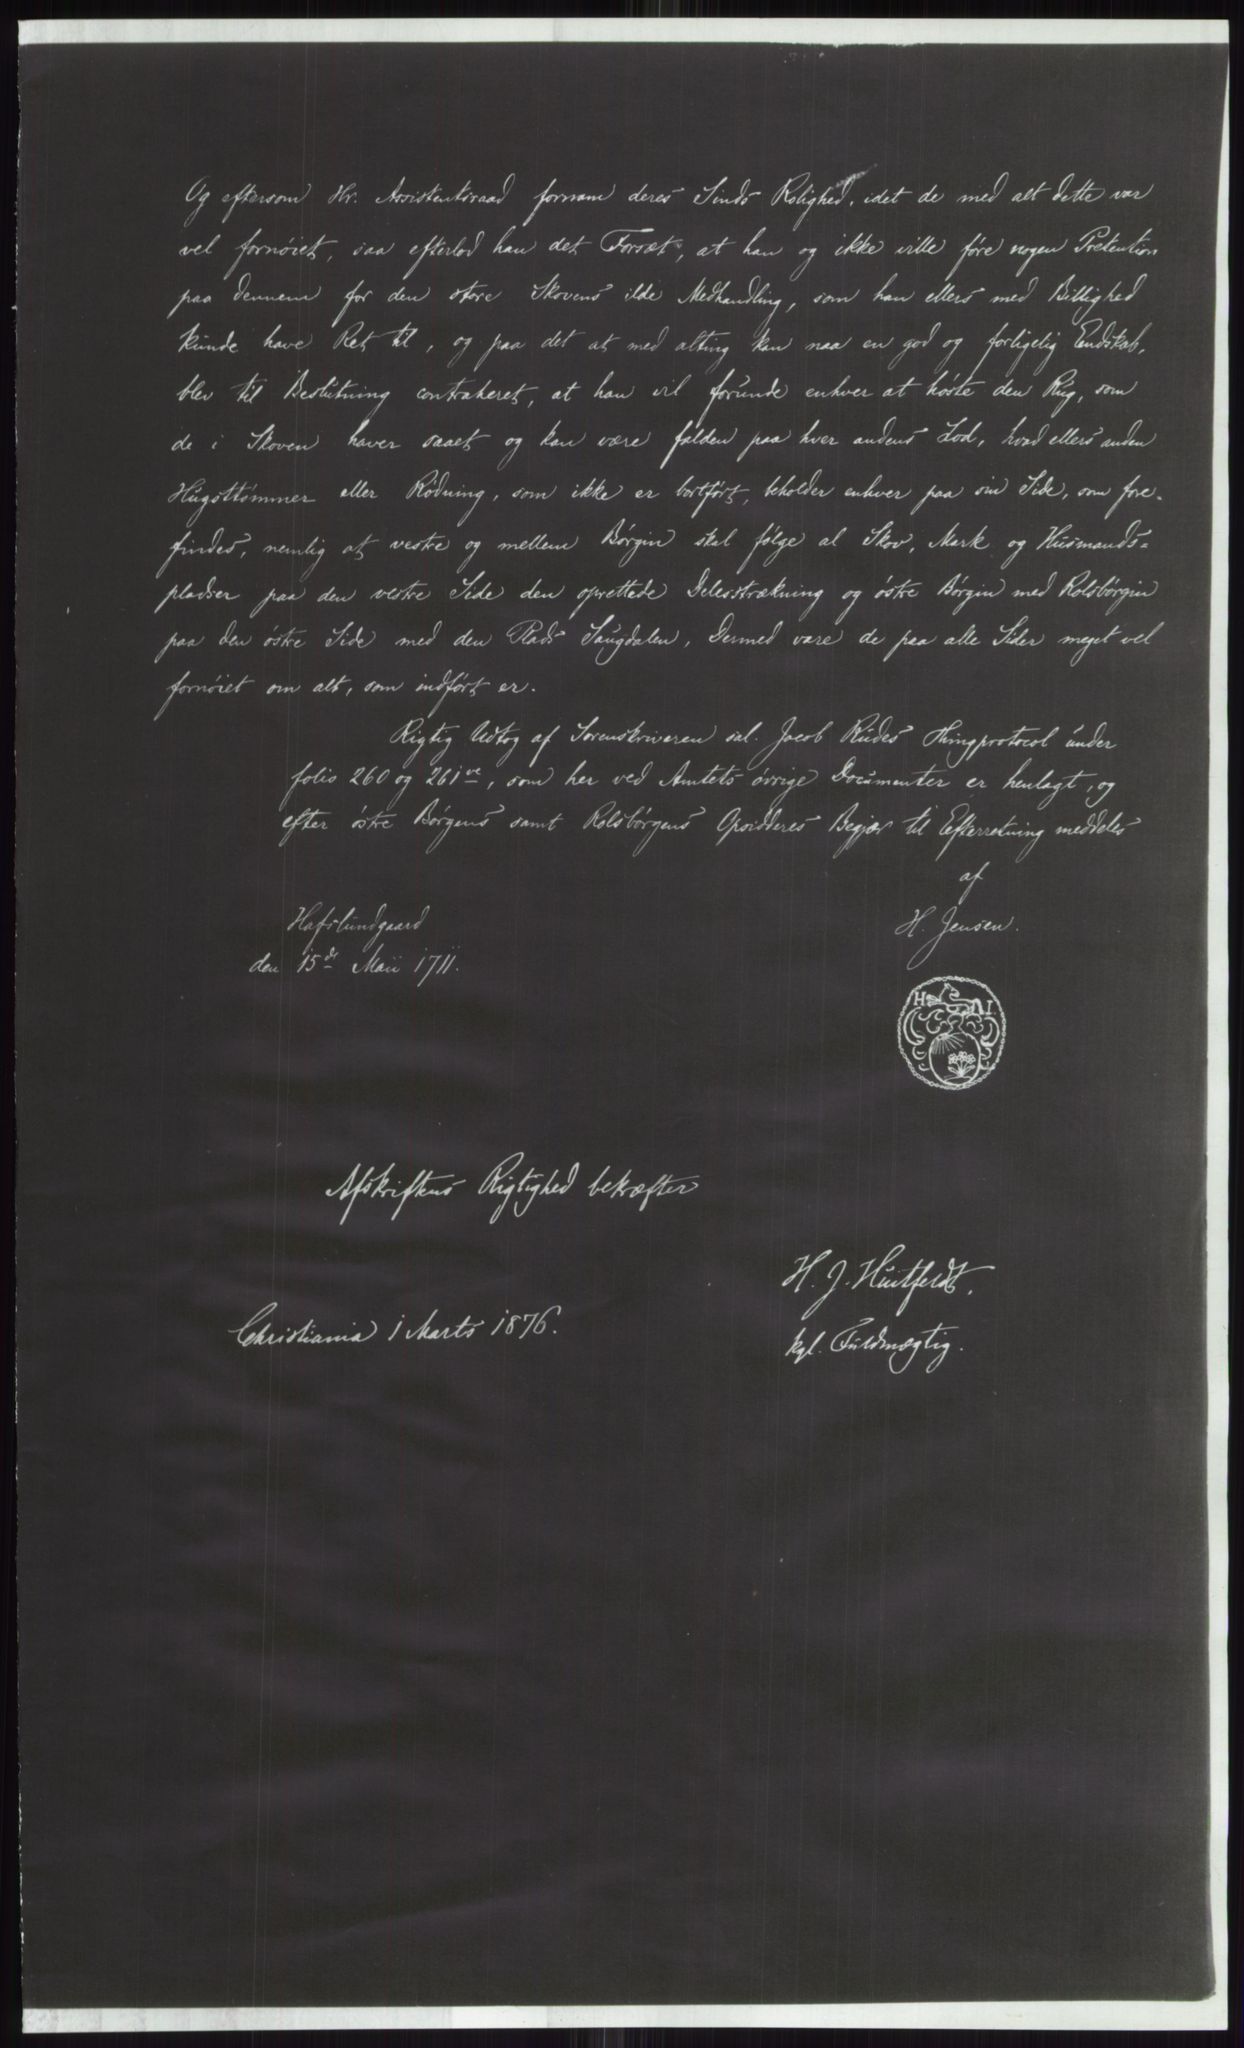 Og eftersom Hr. Assistentsraad fornam deres Sinds Rolighed, idet de med alt dette var
vel fornøiet, saa efterlod han det Forsæt, at han og ikke ville føre nogen Pretention
paa dennem for den store Skovens ilde Medhandling, som han ellers med Billighed
kunde have Ret til, og paa det at med alting kan naa en god og forligelig Endskab,
blev til Beslutning contraheret, at han vil forunde enhver at høste den Rug, som
de i Skoven haver saaet og kan være falden paa hver andens Lod, hvad ellers anden
Hugsttømmer eller Rödning, som ikke er bortført, beholder enhver paa sin Side, som fore-
findes, nemlig at vestre og mellem Børgin skal følge al Skov, Mark og Husmands=
pladser paa den vestre Side den oprettede Delesstrækning og østre Børgin med Rolsbørgin
paa den østre Side med den Plads Saugdalen, Dermed vare de paa alle Sider meget vel
fornøiet om alt, som indført er.
Rigtig Udtog af Sorenskriveren sal. Jacob Rudes Thingprotocol under
folio 260 og 261 ve, som her ved Amtets øvrige Documenter er henlagt, og
efter østre Børgens samt Rolsbørgens Opsidderes Begjær til Efterretning meddeles
af
Hafslundgaard H. Jensen.
den 15de Maii 1711.
H I.
Afskriftens Rigtighed bekræfter
H. J. Huitfeldt,
Christiania 1 Marts 1876.
kgl. Fuldmægtig.